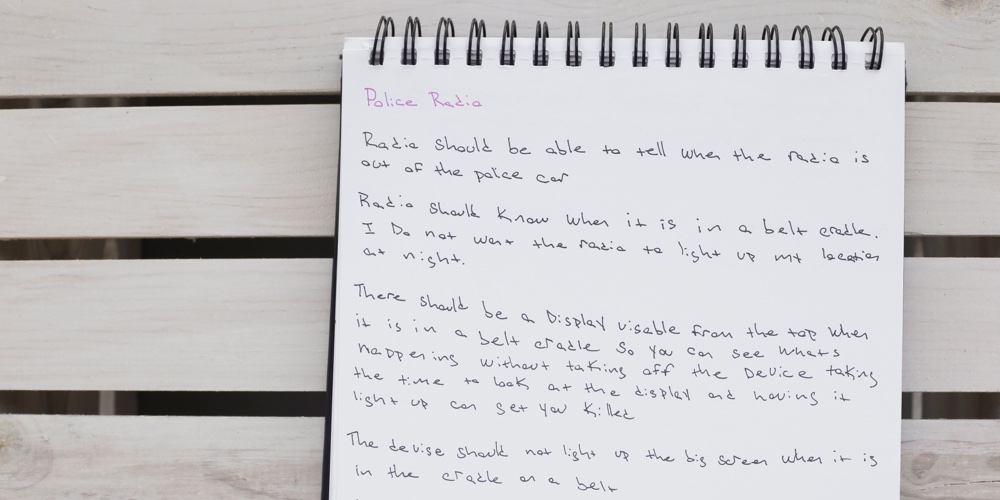 Police Radio
Radio should be able to tell when the radio is
out of the police car
Radio should know when it is in a belt cradle.
I Do not want the radio to light up my location
at night.
There should be a Display visable from the top when
it is in a belt cradle So you can see whats
happening without taking off the Device taking
the time to look at the display and having it
light up can get you killed
The devise should not light up the big screen when it is
in the cradle on a belt